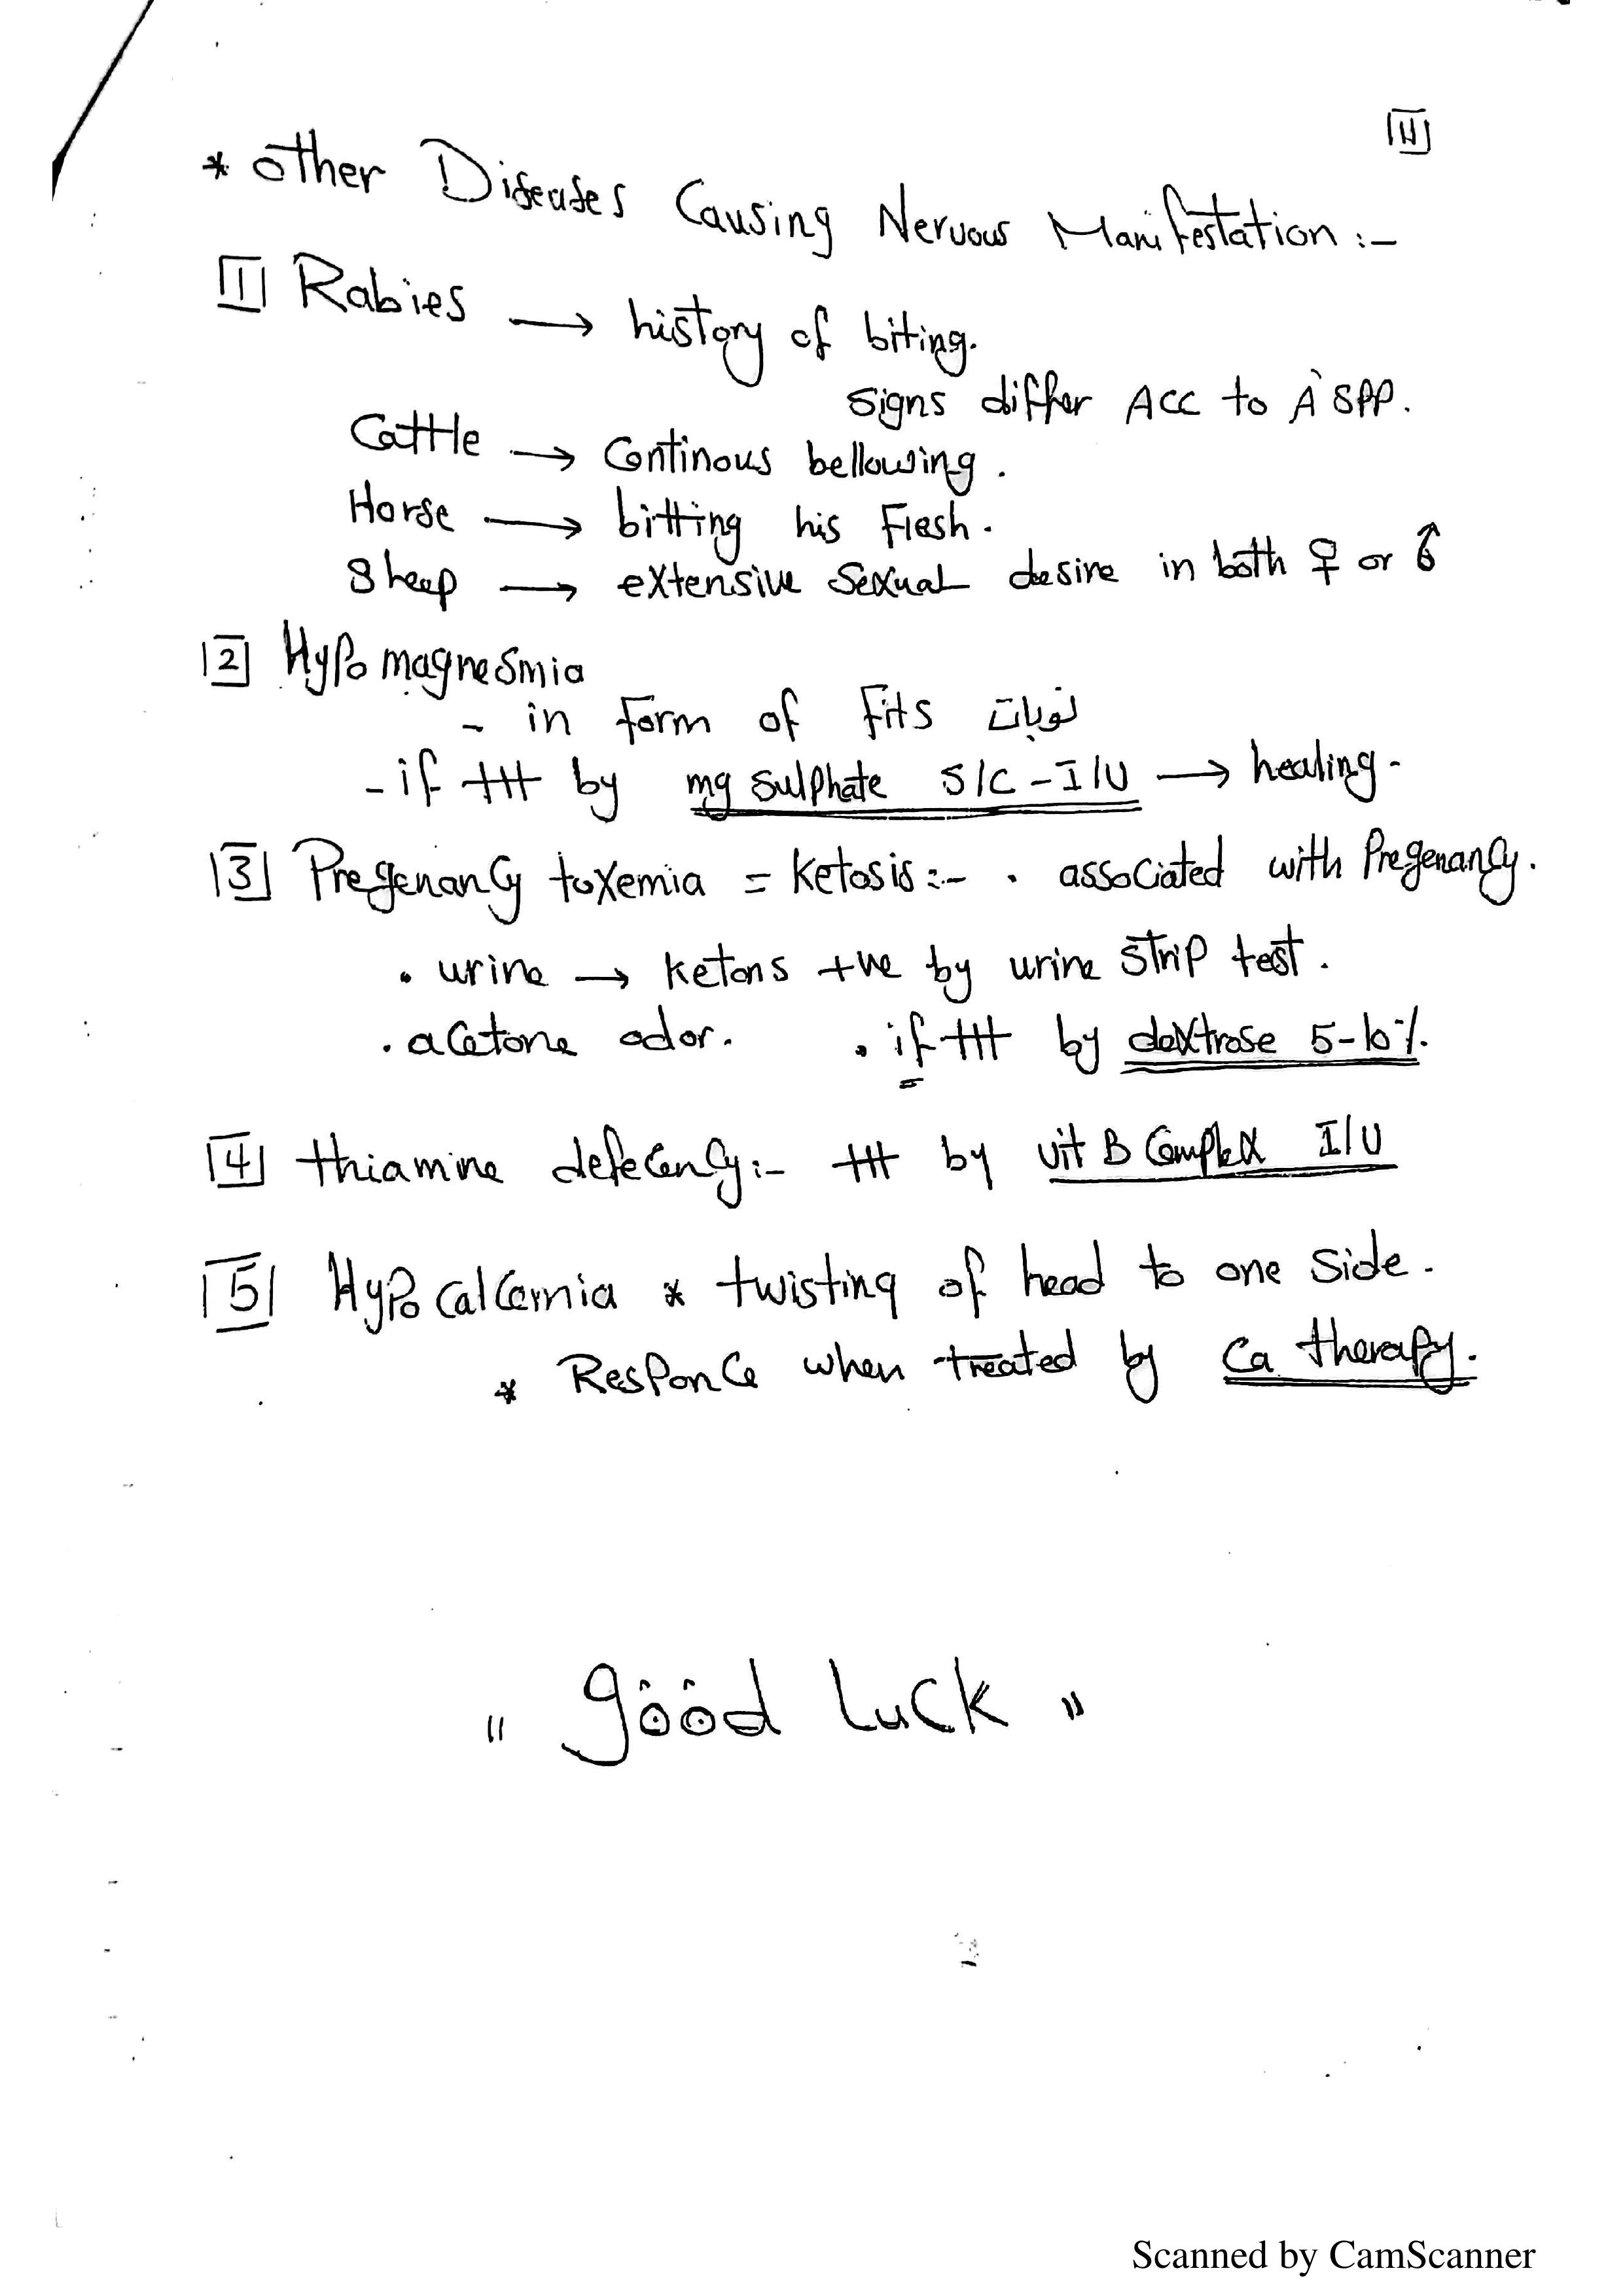 11
* other Diseases Causing Nervous Manifestation :-
1 Rabies → history of biting.
Signs differ Acc to A' SPP.
Cattle → Continous bellowing.
Horse → bitting his Flesh.
Sheep → extensive Sexual desire in both ♀ or ♂
2 Hypomagnesmia
- in form of Fits نوبات
- if ttt by mg sulphate S/C - I/V → healing.
3 Pregenancy toxemia = Ketosis :- . associated with Pregenancy.
. urine → Ketons +ve by urine Strip test.
. acetone odor. . if ttt by dextrose 5-10%.
4 thiamine defecency :- ttt by vit B Complex I/V
5 Hypocalcemia * twisting of head to one Side.
* Responce when treated by Ca therapy.
" good luck "
Scanned by CamScanner